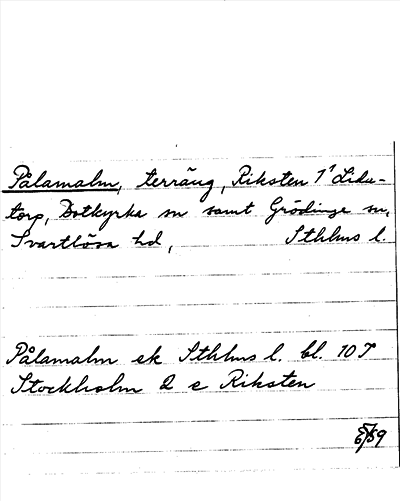 Pålamalm, terräng, Riksten 1' Lida-
torp, Botkyrka sn samt Grödinge sn,
Svartlösa hd, Sthlms l.
Pålamalm ek Sthlms l. bl. 10 I
Stockholm 2 c Riksten